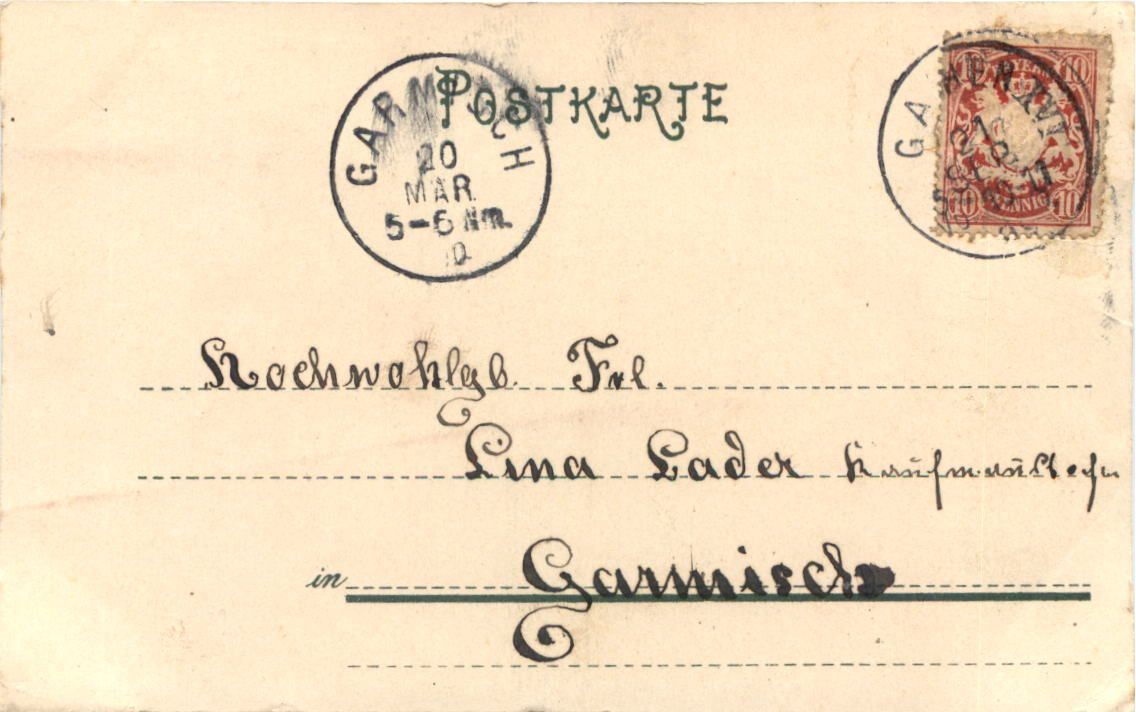 POSTKARTE
GARMISCH
20
MAR.
5-6 Nm.
BAYERN
10 10
10 PFENNIG 10
Hochwohlgb. Frl.
Lina Lader
in Garmisch